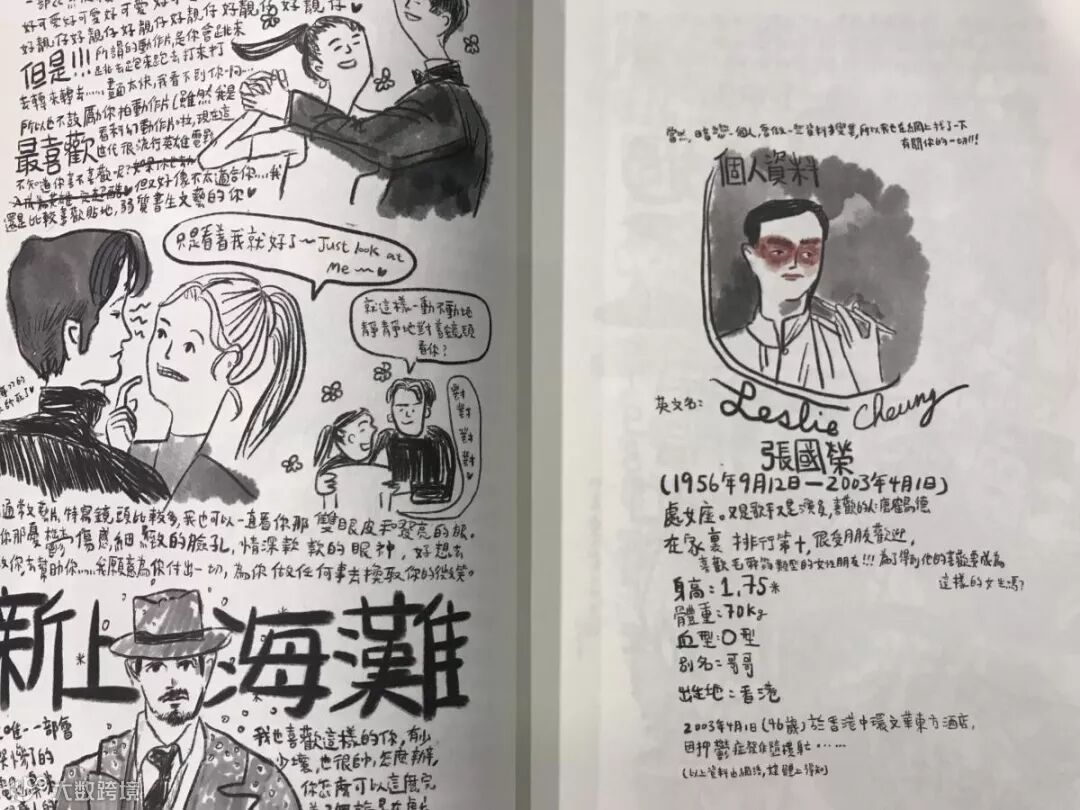 好可愛好可愛好可愛好可愛
好靚仔好靚仔好靚仔好靚仔好靚仔
但是!!! 所謂的動作片,是你會跳來
跳去跑來跑去打來打
去轉來轉去......畫面太快,我看不到你啊...
所以也不鼓勵你拍動作片(雖然我是
最喜歡看科幻動作片啦,現在這
世代很流行英雄電影
不知道你喜不喜歡呢?
但又好像不太適合你...我
還是比較喜歡貼地,弱質書生文藝的你
只是看著我就好了~Just look at
Me~
就這樣一動不動地
靜靜地對著鏡頭
看你?
對對對對
通常文藝片,特寫鏡頭比較多,我也可以一直看你那雙眼皮和發亮的眼。
你那憂鬱傷感,細緻的臉孔,情深款款的眼神,好想去
救你,去幫助你....我願意為你付出一切,為你做任何事去換取你的微笑。
新上海灘
唯一一部會
我也喜歡這樣的你,有少
少壞,也很帥,怎麼辦,
你怎麼可以這麼完
當然,暗戀一個人,會做一些資料搜集,所以我也在網上找了一下
有關你的一切!!!
個人資料
英文名: Leslie Cheung
張國榮
(1956年9月12日—2003年4月1日)
處女座。又是歌手又是演員,喜歡的人:唐鶴德
在家裏排行第十,很受朋友歡迎,
喜歡毛舜筠類型的女性朋友!!!為了得到他的喜歡要成為
這樣的女生嗎?
身高:1.75米
體重:70kg
血型:O型
別名:哥哥
出生地:香港
2003年4月1日(46歲)於香港中環文華東方酒店,
因抑鬱症發作墮樓身亡......
(以上資料由網活,媒體上得知)
大数跨境